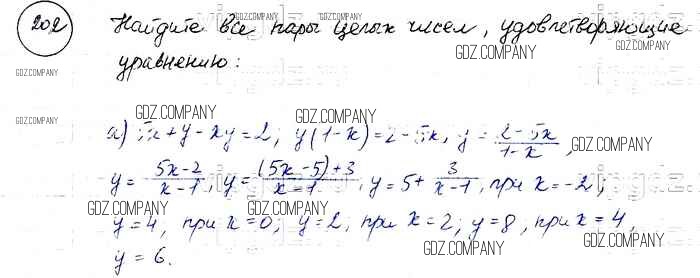 202 Найдите все пары целых чисел, удовлетворяющие
GDZ.COMPANY GDZ.COMPANY GDZ.COMPANY GDZ.COMPANY
уравнению:
GDZ.COMPANY
а) 5x+y-xy=2; y(1-x)=2-5x, y = \frac{2-5x}{1-x},
GDZ.COMPANY
y = \frac{5x-2}{x-1}, y = \frac{(5x-5)+3}{x-1}, y = 5 + \frac{3}{x-1}, при x=-2;
GDZ.COMPANY GDZ.COMPANY GDZ.COMPANY
y=4, при x=0; y=2, при x=2; y=8, при x=4,
GDZ.COMPANY GDZ.COMPANY
y=6.